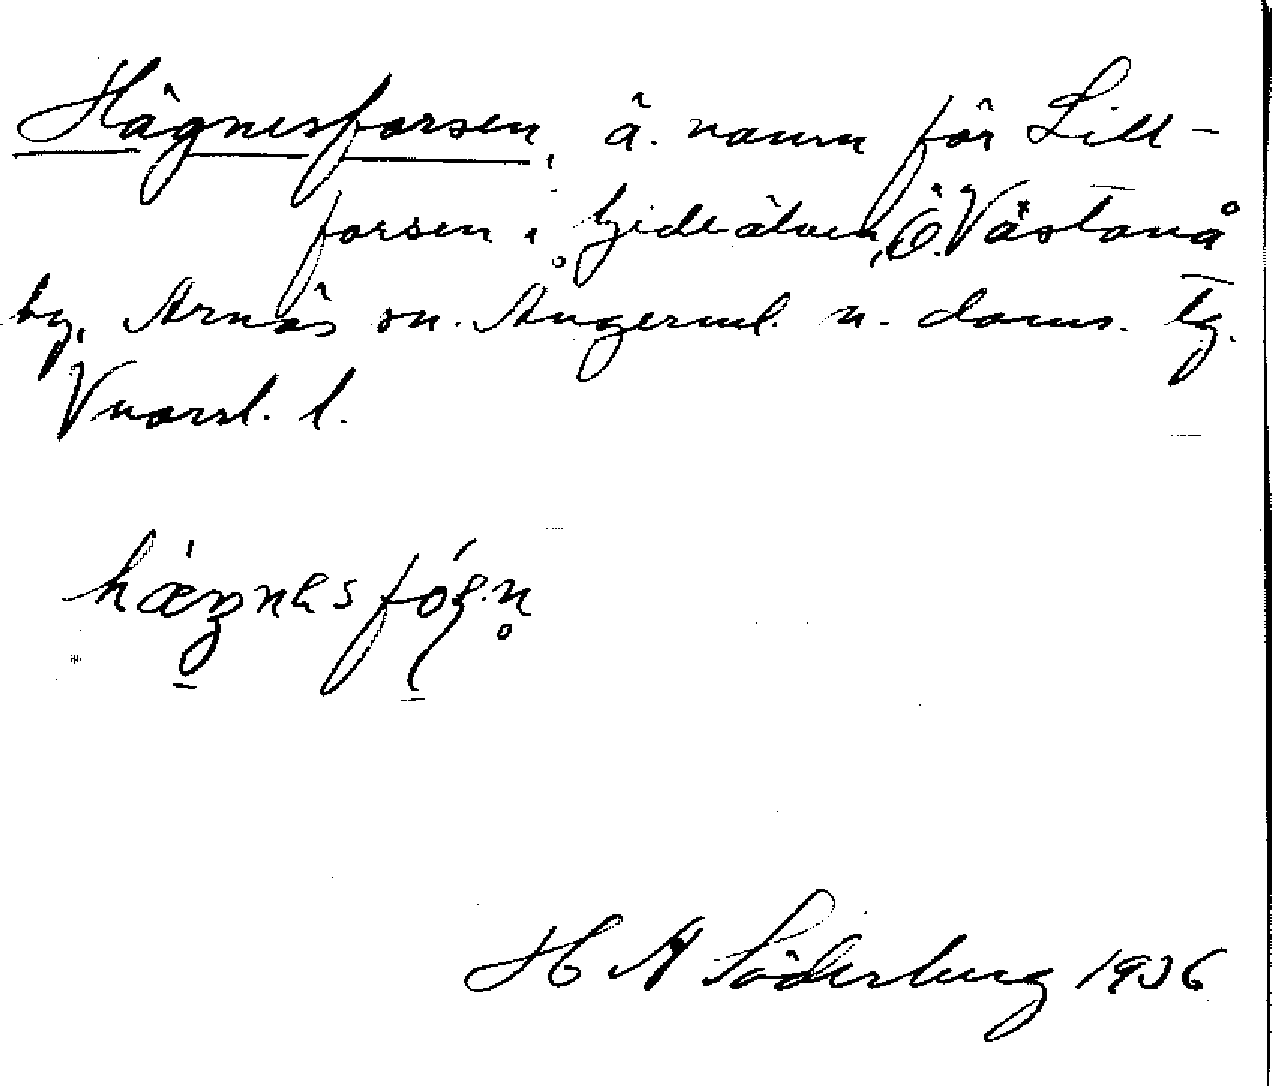 Hägnesforsen, ä. namn för Lill-
forsen i Gideälven, Ö. Västanå
by, Arnäs sn. Ångerml. n. doms. tg.
Vnorrl. l.
hägnesfórsn
H A Söderberg 1936